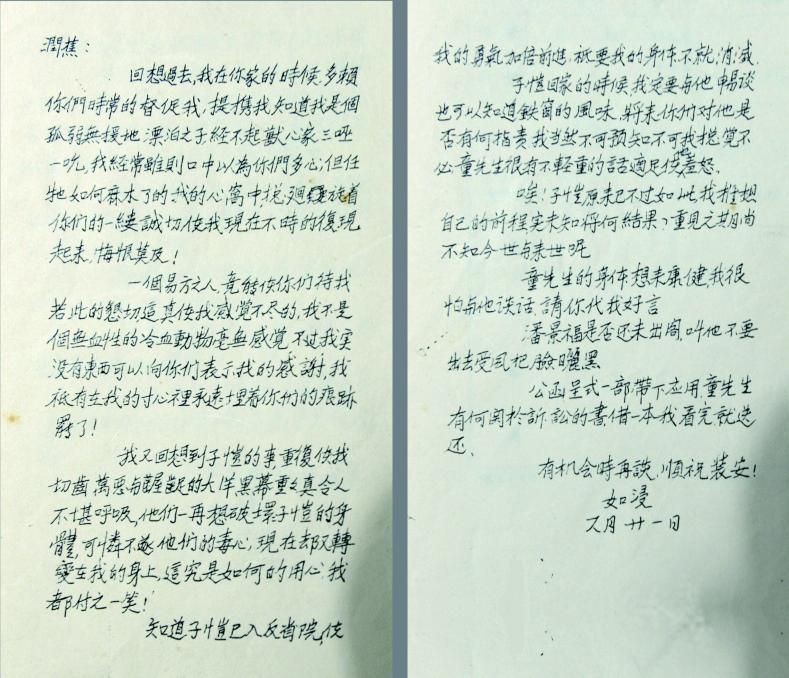 潤蕉：
回想過去,我在你家的時候,多賴
你們時常的督促我,提携我,知道我是個
孤弱無援地漂泊之子,經不起獸心家三吹
一吃,我經常雖則口中以為你們多心,但任
牠如何麻木了的我的心窩中,總迴旋着
你們的一縷誠切使我現在不時的復現
起来,悔恨莫及！
一個易方之人,竟能使你们待我
若此的懇切這真使我感覚不尽的,我不是
個無血性的冷血動物毫無感覚,不过我实
没有東西可以向你们表示我的感謝,我
祇有在我的寸心裡永遠埋着你们的痕跡
罷了！
我又回想到子愷的事,重復使我
切齒,萬惡与齷齪的大洋黑幕重重真令人
不堪呼吸,他们一再想破壞子愷的身
體,可憐不遂他们的毒心,現在却又轉
變在我的身上,這究是如何的用心,我
都付之一笑！
知道子愷已入反省院,使
我的勇氣加倍前進,祇要我的身体不就消滅.
子愷回家的時候,我定要与他暢谈
也可以知道鉄窗的風味,将来你们对他是
否有何指责我当然不可预知,不可我总覚不
必童先生很有不輕重的話適足使他羞怒.
唉！子愷原来已不过如此,我推想
自己的前程实未知将何結果？重見之期尚
不知今世与来世呢
童先生的身体想来康健,我很
怕与他谈话,請你代我好言
潘景福是否还未出阁,叫他不要
出去受風把臉晒黑
公函呈式一部带下应用,童先生
有何関於訴訟的書借一本我看完就送
还.
有机会時再談,順祝裝安！
如浸
又月廿一日